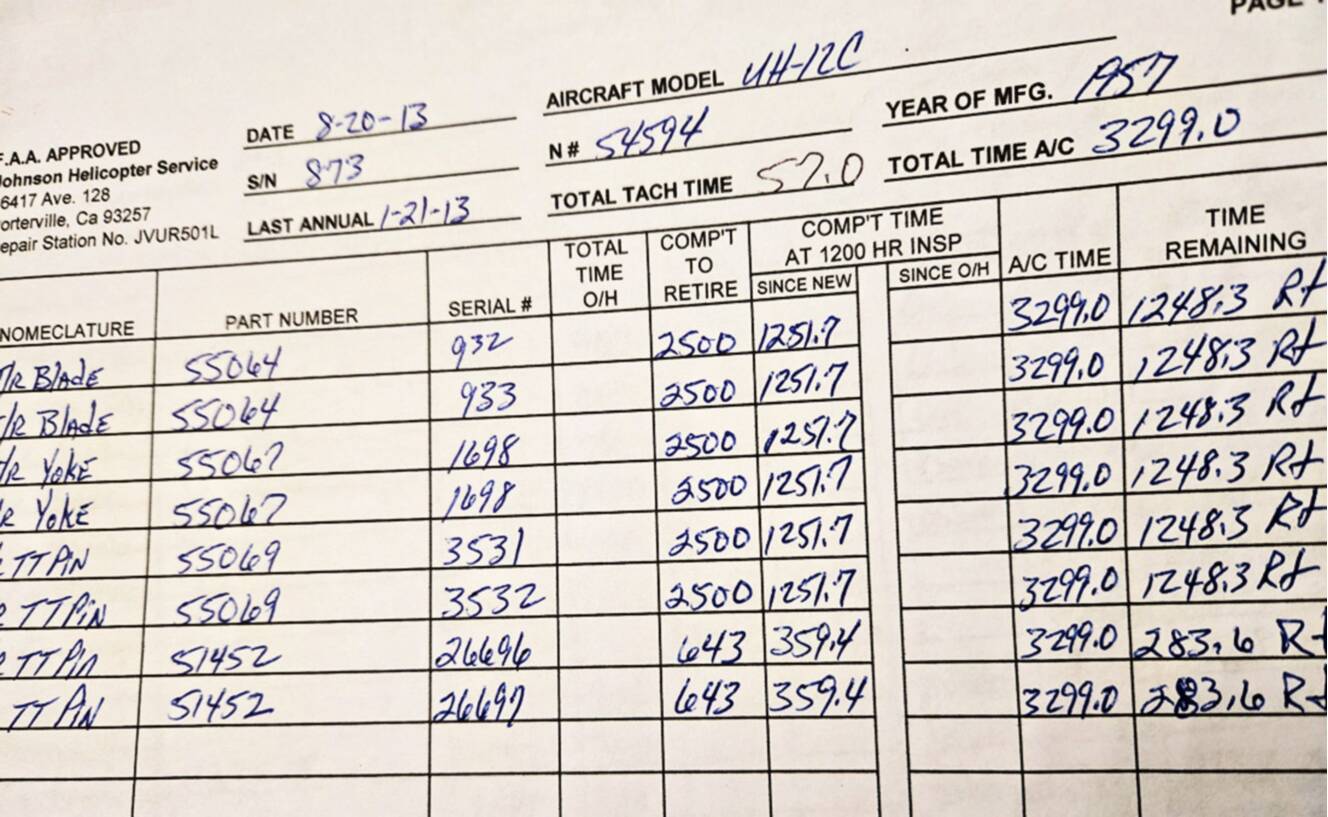 PAGE
F.A.A. APPROVED
Johnson Helicopter Service
6417 Ave. 128
orterville, Ca 93257
epair Station No. JVUR501L
DATE 8-20-13
S/N 873
LAST ANNUAL 1-21-13
AIRCRAFT MODEL UH-12C
N# 54594
TOTAL TACH TIME 57.0
YEAR OF MFG. 1957
TOTAL TIME A/C 3299.0
NOMECLATURE PART NUMBER SERIAL # TOTAL TIME O/H COMP'T TO RETIRE COMP'T TIME AT 1200 HR INSP SINCE NEW SINCE O/H A/C TIME TIME REMAINING
/R BladE 55064 932 2500 1251.7 3299.0 1248.3 Rt
/R BladE 55064 933 2500 1251.7 3299.0 1248.3 Rt
/R YokE 55067 1698 2500 1251.7 3299.0 1248.3 Rt
R YokE 55067 1698 2500 1251.7 3299.0 1248.3 Rt
R TT Pin 55069 3531 2500 1251.7 3299.0 1248.3 Rt
R TT Pin 55069 3532 2500 1251.7 3299.0 1248.3 Rt
R TT Pin 51452 26696 643 359.4 3299.0 283.6 Rt
TT Pin 51452 26697 643 359.4 3299.0 283.6 Rt